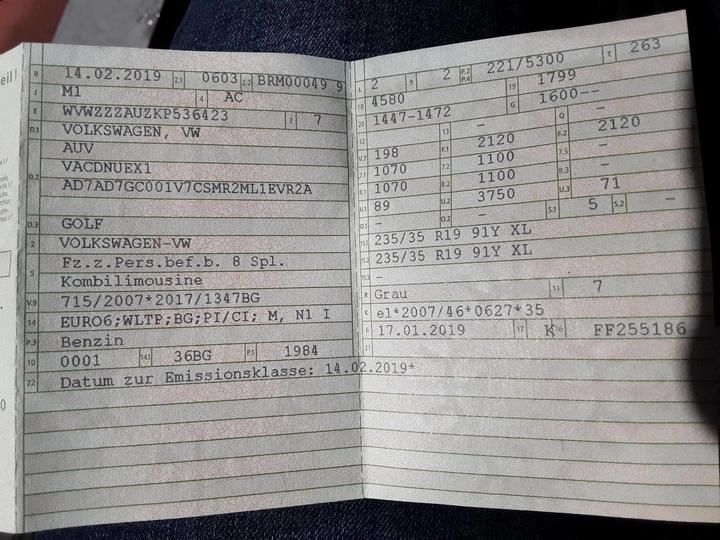 Teil I
B 14.02.2019 2.1 0603 2.2 BRM00049 9
J M1 4 AC
E WVWZZZAUZKP536423 3 7
D.1 VOLKSWAGEN, VW
AUV
D.2 VACDNUEX1
AD7AD7GC001V7CSMR2ML1EVR2A
D.3 GOLF
2 VOLKSWAGEN-VW
5 Fz.z.Pers.bef.b. 8 Spl.
Kombilimousine
V.9 715/2007*2017/1347BG
14 EURO6;WLTP;BG;PI/CI; M, N1 I
P.3 Benzin
10 0001 14.1 36BG P.1 1984
22 Datum zur Emissionsklasse: 14.02.2019*
L 2 9 2 P.2 P.4 221/5300 T 263
18 4580 19 1799
20 1447-1472 G 1600--
12 - 13 - Q -
V.7 198 F.1 2120 F.2 2120
7.1 1070 7.2 1100 7.3 -
8.1 1070 8.2 1100 8.3 -
U.1 89 U.2 3750 U.3 71
O.1 - O.2 - S.1 5 S.2 -
15.1 235/35 R19 91Y XL
15.2 235/35 R19 91Y XL
15.3 -
R Grau 11 7
K e1*2007/46*0627*35
6 17.01.2019 17 K 16 FF255186
21